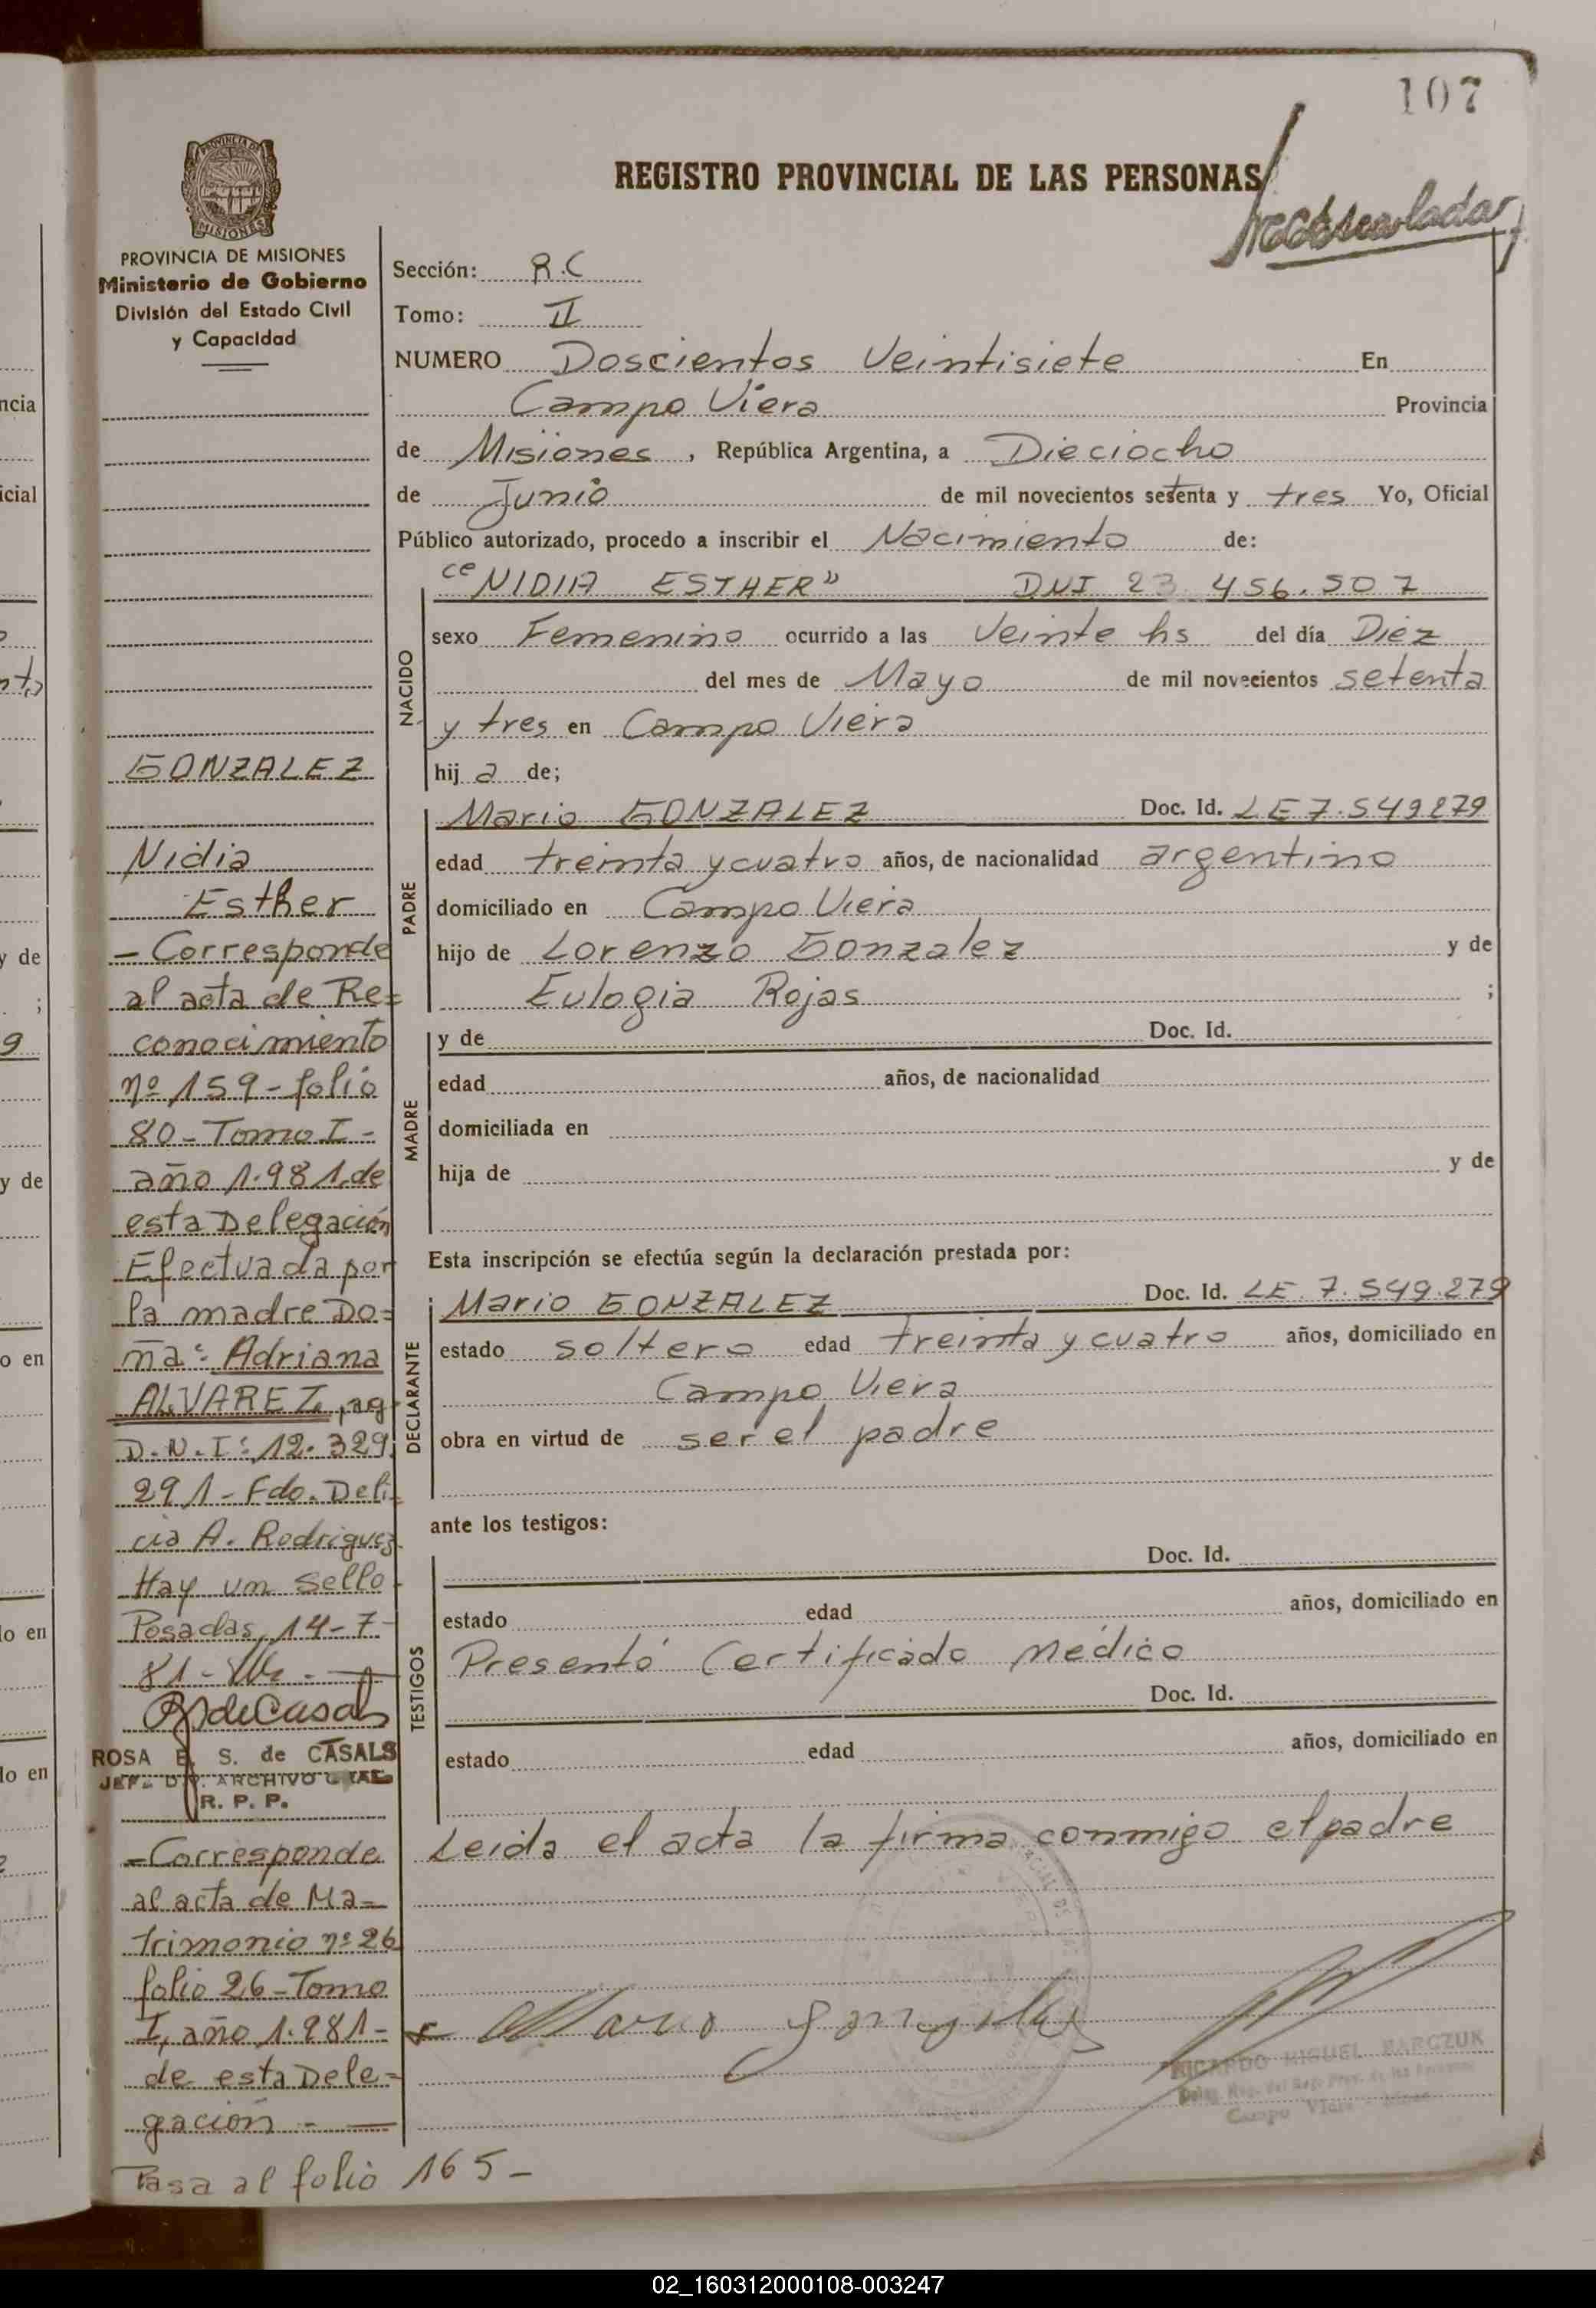 107
REGISTRO PROVINCIAL DE LAS PERSONAS
PROVINCIA DE MISIONES
Ministerio de Gobierno
División del Estado Civil
y Capacidad
Sección: R.C
Tomo: II
NUMERO Doscientos Veintisiete En
Campo Viera Provincia
de Misiones, República Argentina, a Dieciocho
de Junio de mil novecientos setenta y tres Yo, Oficial
Público autorizado, procedo a inscribir el Nacimiento de:
NACIDO
"NIDIA ESTHER" DNI 23.456.507
sexo Femenino ocurrido a las Veinte hs del día Diez
del mes de Mayo de mil novecientos setenta
y tres en Campo Viera
hija de;
PADRE
Mario GONZALEZ Doc. Id. LE 7.549279
edad treinta y cuatro años, de nacionalidad argentino
domiciliado en Campo Viera
hijo de Lorenzo Gonzalez y de
Eulogia Rojas ;
MADRE
y de Doc. Id.
edad años, de nacionalidad
domiciliada en
hija de y de
Esta inscripción se efectúa según la declaración prestada por:
DECLARANTE
Mario GONZALEZ Doc. Id. LE. 7.549.279
estado soltero edad treinta y cuatro años, domiciliado en
Campo Viera
obra en virtud de ser el padre
ante los testigos:
TESTIGOS
Doc. Id.
estado edad años, domiciliado en
Presentó Certificado médico
Doc. Id.
estado edad años, domiciliado en
Leida el acta la firma conmigo el padre
Mario Gonzalez
RICARDO MIGUEL BARCZUK
Campo Viera
GONZALEZ
Nidia
Esther
- Corresponde
al acta de Re=
conocimiento
nº 159 - folio
80 - Tomo I -
año 1.981 de
esta Delegación
Efectuada por
la madre Do=
ña: Adriana
ALVAREZ, arg
D.N.I: 12.329.
291 - Fdo. Deli=
cia A. Rodriguez
Hay un sello.
Posadas, 14-7-
81 -
ROSA E. S. de CASALS
ARCHIVO
R. P. P.
- Corresponde
al acta de Ma=
trimonio nº 26
folio 26 - Tomo
I, año 1.981 -
de esta Dele=
gación -
Pasa al folio 165 -
ncia
icial
y de
;
9
y de
o en
lo en
lo en
02_160312000108-003247